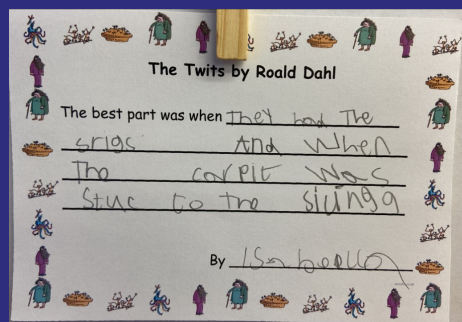 The Twits by Roald Dahl
The best part was when They had The
srigs And When
The carpit was
Stuc to the sicingg
By Isabella